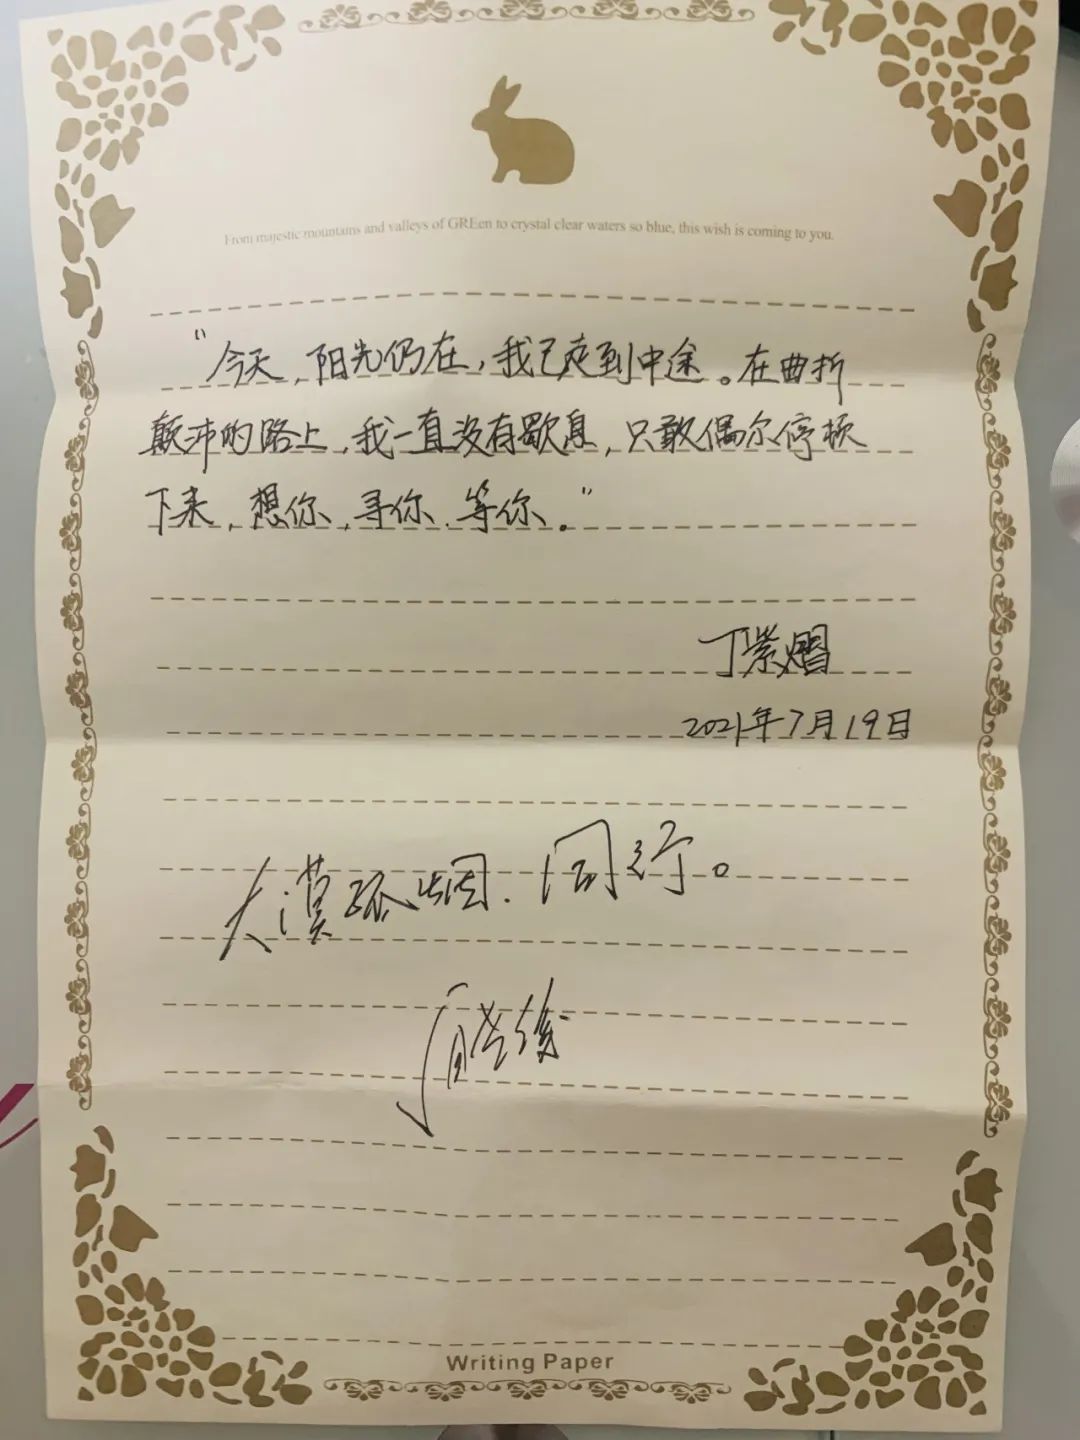 From majestic mountains and valleys of GREen to crystal clear waters so blue, this wish is coming to you.
“今天,阳光仍在,我已走到中途。在曲折
颠沛的路上,我一直没有歇息,只敢偶尔停顿
下来,想你,寻你,等你。”
丁紫熠
2021年7月19日
大漠孤烟.同行。
Writing Paper